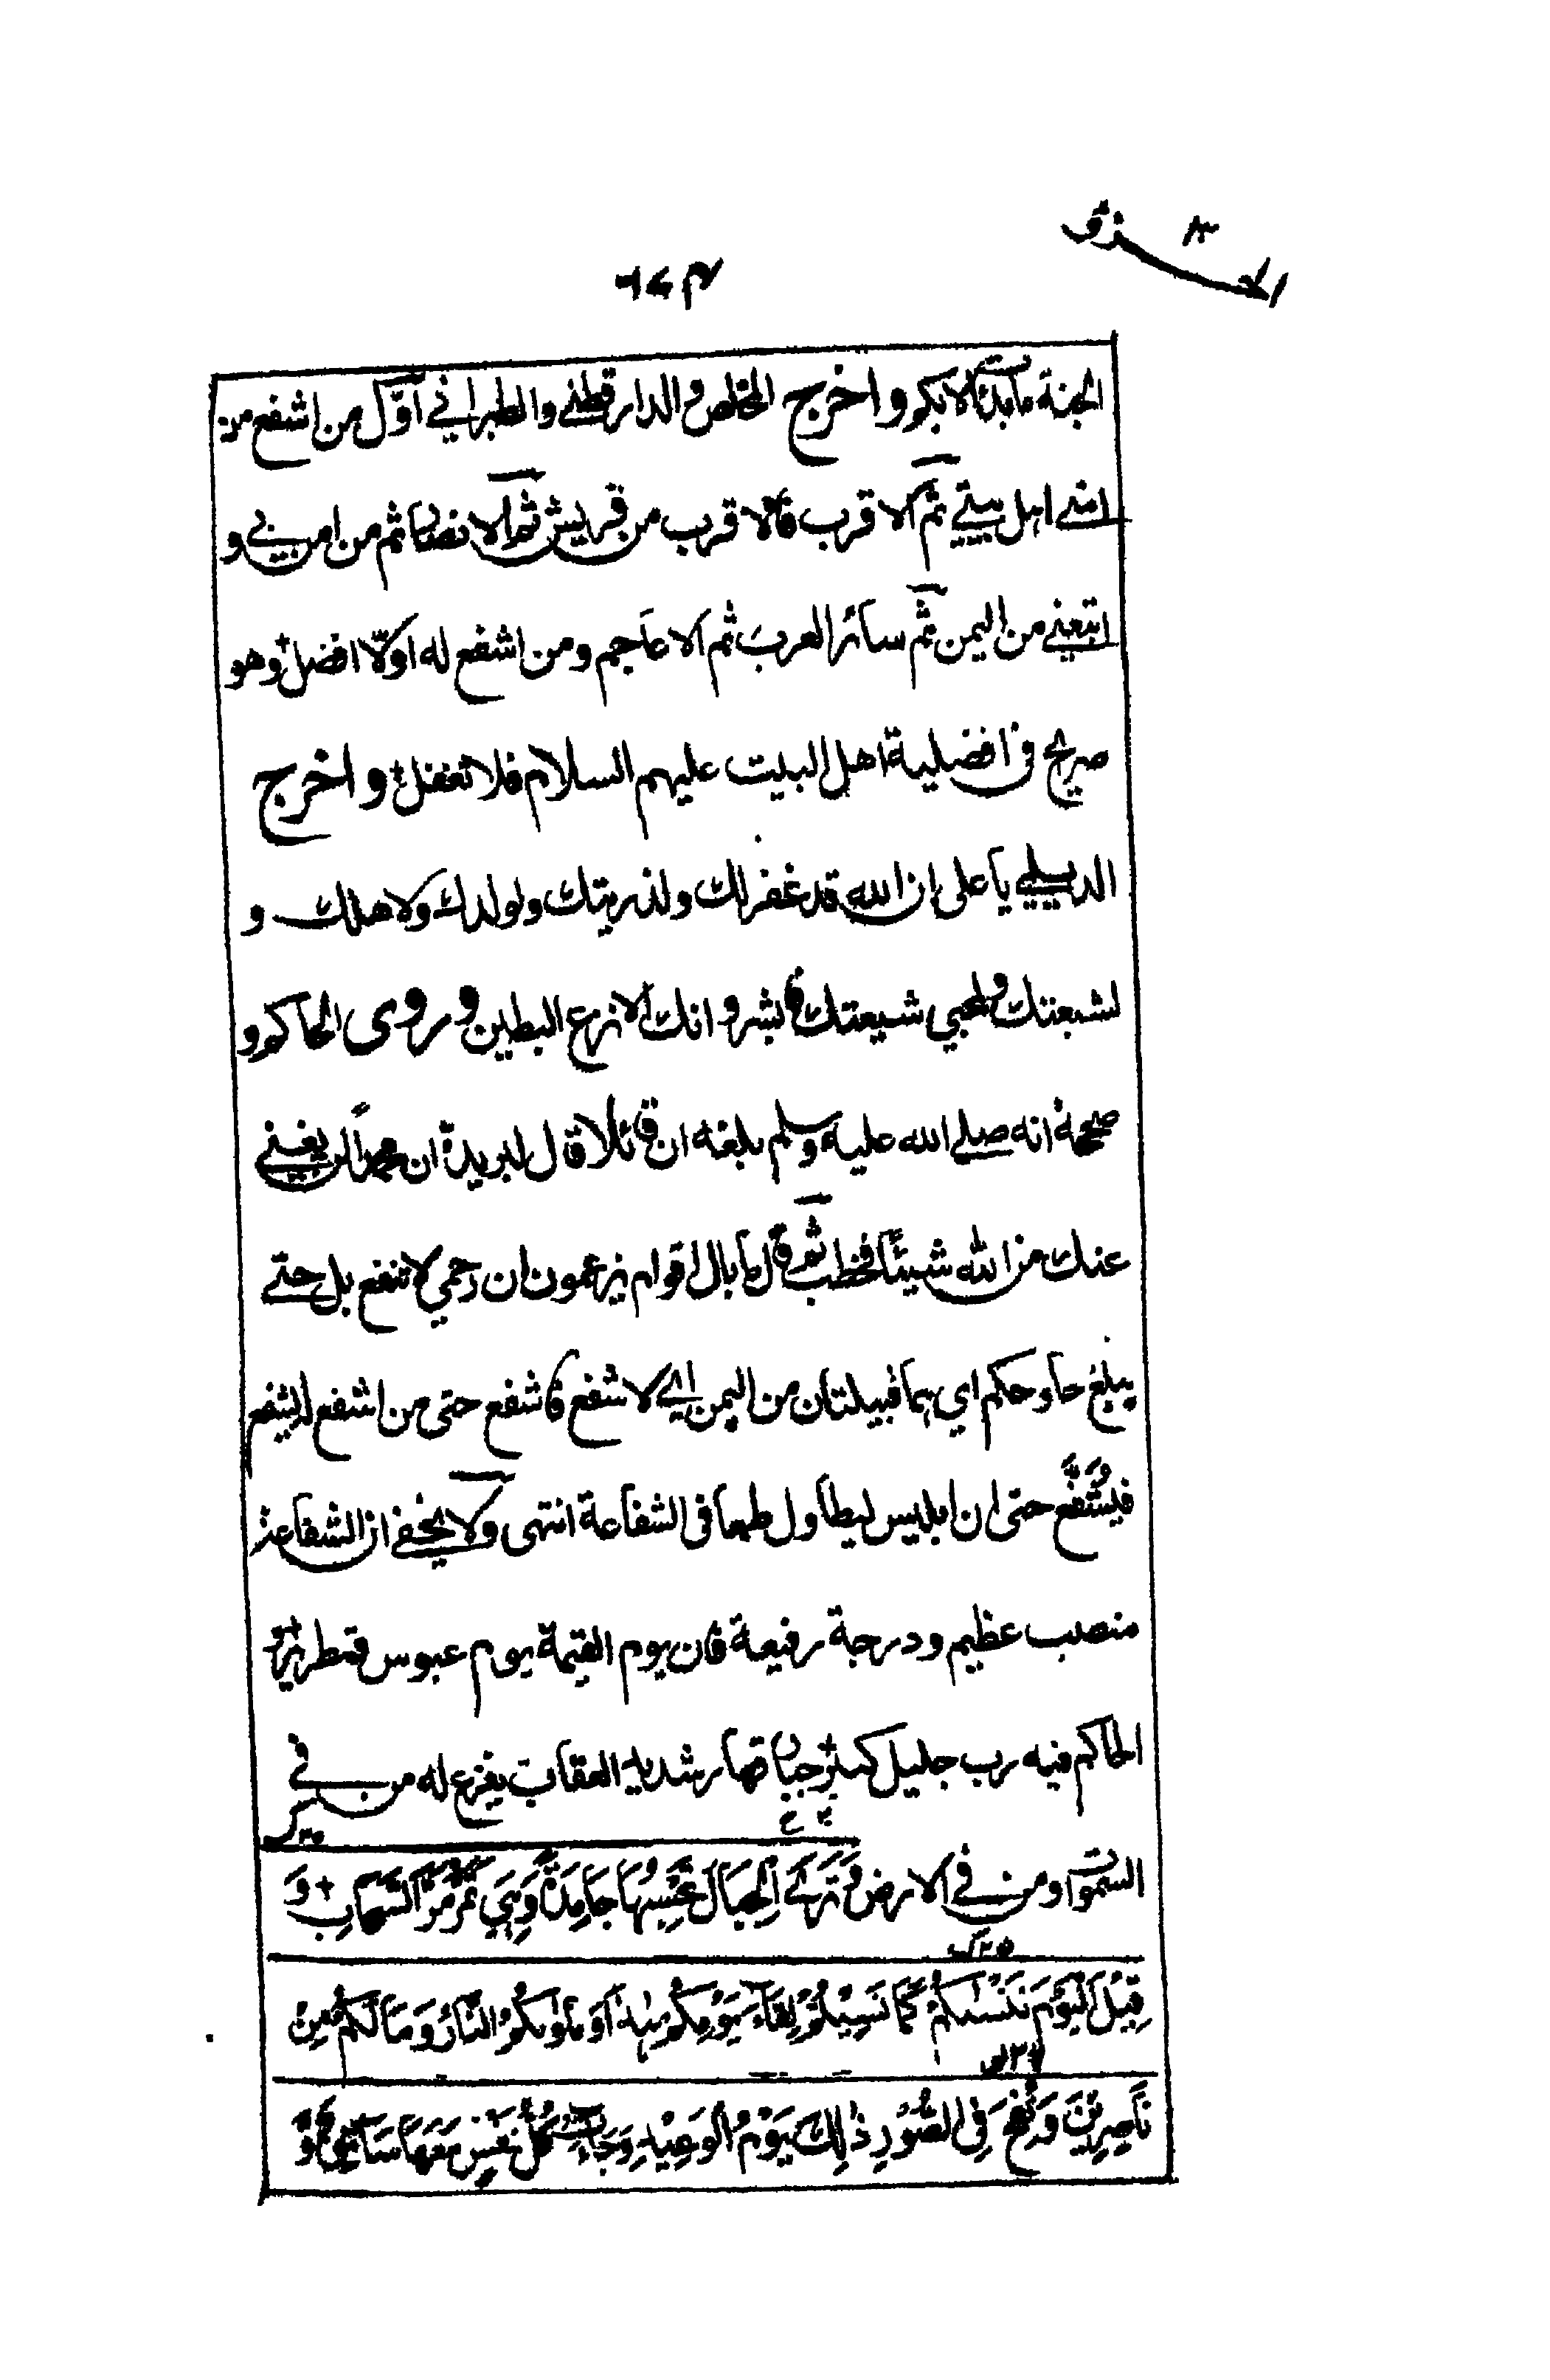 الجزء ٣
الجنة ما بدأ الا بكم واخرج المخلص والدارقطني والطبراني اول من اشفع من
امتي اهل بيتي ثم الاقرب فالاقرب من قريش ثم الانصار ثم من امن بي و
اتبعني من اليمن ثم سائر العرب ثم الاعاجم ومن اشفع له اولا افضل وهو
صريح في افضلية اهل البيت عليهم السلام فلا تغفل واخرج
الديلمي يا علي ان الله قد غفر لك ولذريتك ولولدك ولاهلك و
لشيعتك ولمحبي شيعتك فابشر وانك الانزع البطين وروى الحاكم و
صححه انه صلى الله عليه وسلم بلغه ان قائلا قال لبريدة ان محمدا لن يغني
عنك من الله شيئا فخطب ثم قال ما بال اقوام يزعمون ان رحمي لا تنفع بل حتى
يبلغ حا وحكم اي هما قبيلتان من اليمن اني لاشفع فاشفع حتى من اشفع له ليشفع
فيُشَفَّع حتى ان ابليس ليطاول طمعا في الشفاعة انتهى ولا يخفى ان الشفاعة
منصب عظيم ودرجة رفيعة فان يوم القيمة يوم عبوس قمطرير
الحاكم فيه رب جليل كبير جبار قهار شديد العقاب يفزع له من في
السموات ومن في الارض وَتَرَى الْجِبَالَ تَحْسَبُهَا جَامِدَةً وَهِيَ تَمُرُّ مَرَّ السَّحَابِ وَ
قِيْلَ الْيَوْمَ نَنْسٰكُمْ كَمَا نَسِيْتُمْ لِقَآءَ يَوْمِكُمْ هٰذَا وَمَأْوٰىكُمُ النَّارُ وَمَا لَكُمْ مِنْ
نَاصِرِيْنَ وَنُفِخَ فِي الصُّوْرِ ذٰلِكَ يَوْمُ الْوَعِيْدِ وَجَآءَتْ كُلُّ نَفْسٍ مَعَهَا سَآئِقٌ وَ